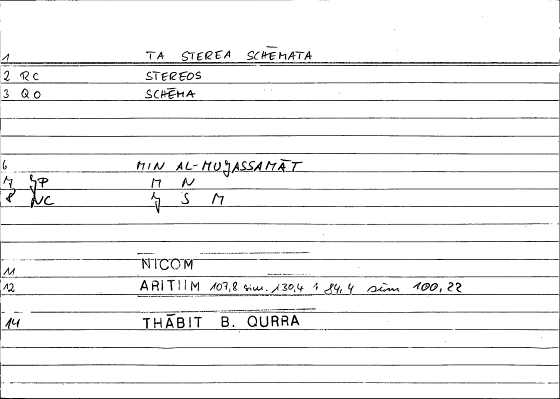 1 TA STEREA SCHĒMATA
2 RC STEREOS
3 QO SCHĒMA
6 MIN AL-MUǦASSAMĀT
7 ǦP M N
8 NC Ǧ S M
11 NICOM
12 ARITIIM 107,8 sim. 130,4 84,4 sim 100,22
14 THĀBIT B. QURRA